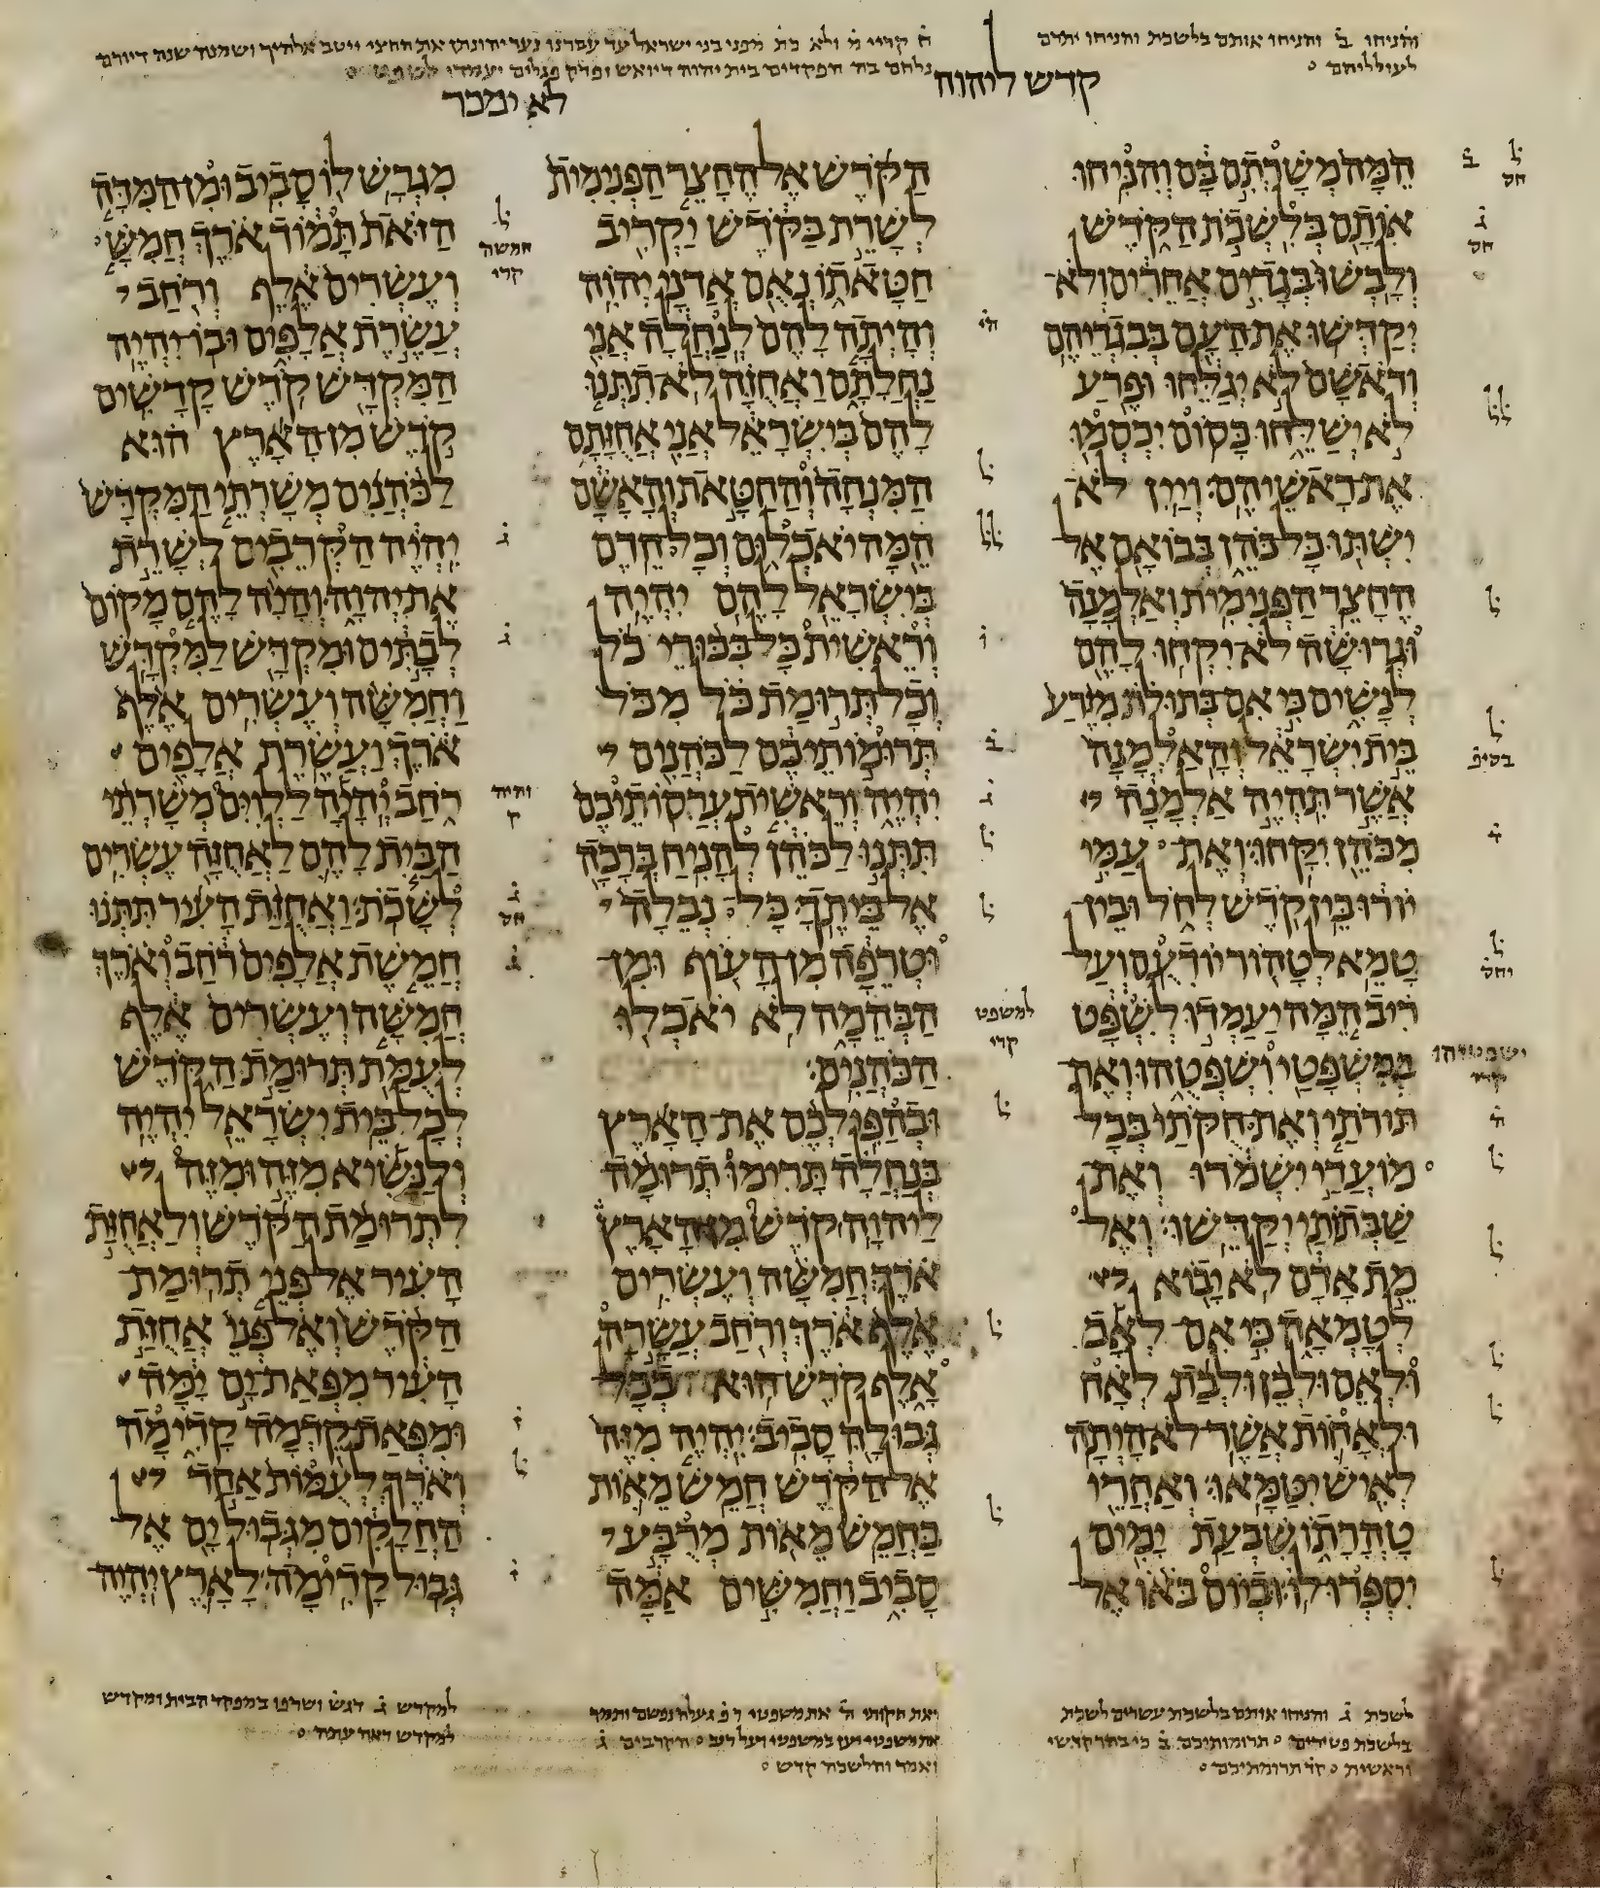 והניחו ב והניחו אותם בלשכת והניחו יתרם
לעולליהם
קדש ליהוה
לא ימכר
המה משרתם בם והניחו
אותם בלשכת הקדש
ולבשו בגדים אחרים ולא
יקדשו את העם בבגדיהם
וראשם לא יגלחו ופרע
לא ישלחו כסום יכסמו
את ראשיהם ויין לא
ישתו כל כהן בבואם אל
החצר הפנימית ואלמנה
וגרושה לא יקחו להם
לנשים כי אם בתולת מזרע
בית ישראל והאלמנה
אשר תהיה אלמנה
מכהן יקחו ואת עמי
יורו בין קדש לחל ובין
טמא לטהור יודעם ועל
ריב המה יעמדו לשפט
במשפטי ושפטהו ואת
תורתי ואת חקתי בכל
מועדי ישמרו ואת
שבתותי יקדשו ואל
מת אדם לא יבוא
לטמאה כי אם לאב
ולאם ולבן ולבת לאח
ולאחות אשר לא היתה
לאיש יטמאו ואחרי
טהרתו שבעת ימים
יספרו לו וביום באו אל
הקדש אל החצר הפנימית
לשרת בקדש יקריב
חטאתו נאם אדני יהוה
והיתה להם לנחלה אני
נחלתם ואחזה לא תתנו
להם בישראל אני אחזתם
המנחה והחטאת והאשם
המה יאכלום וכל חרם
בישראל להם יהיה
וראשית כל בכורי כל
וכל תרומת כל מכל
תרומותיכם לכהנים
יהיה וראשית ערסותיכם
תתנו לכהן להניח ברכה
אל ביתך כל נבלה
וטרפה מן העוף ומן
הבהמה לא יאכלו
הכהנים
ובהפילכם את הארץ
בנחלה תרימו תרומה
ליהוה קדש מן הארץ
ארך חמשה ועשרים
אלף ארך ורחב עשרה
אלף קדש הוא בכל
גבולה סביב יהיה מזה
אל הקדש חמש מאות
בחמש מאות מרבע
סביב וחמשים אמה
מגרש לו סביב ומן המדה
הזאת תמוד ארך חמש
ועשרים אלף ורחב
עשרת אלפים ובו יהיה
המקדש קדש קדשים
קדש מן הארץ הוא
לכהנים משרתי המקדש
יהיה הקרבים לשרת
את יהוה והיה להם מקום
לבתים ומקדש למקדש
וחמשה ועשרים אלף
ארך ועשרת אלפים
רחב יהיה ללוים משרתי
הבית להם לאחזה עשרים
לשכת ואחזת העיר תתנו
חמשת אלפים רחב וארך
חמשה ועשרים אלף
לעמת תרומת הקדש
לכל בית ישראל יהיה
ולנשיא מזה ומזה
לתרומת הקדש ולאחזת
העיר אל פני תרומת
הקדש ואל פני אחזת
העיר מפאת ים ימה
ומפאת קדמה קדימה
וארך לעמות אחד
החלקים מגבול ים אל
גבול קדימה לארץ יהיה
חמשה
קרי
והיה
ק
למשפט
קרי
לשכת ג והניחו אותם בלשכת עשרים לשכת
וראשית
ואמר
למקדש ג